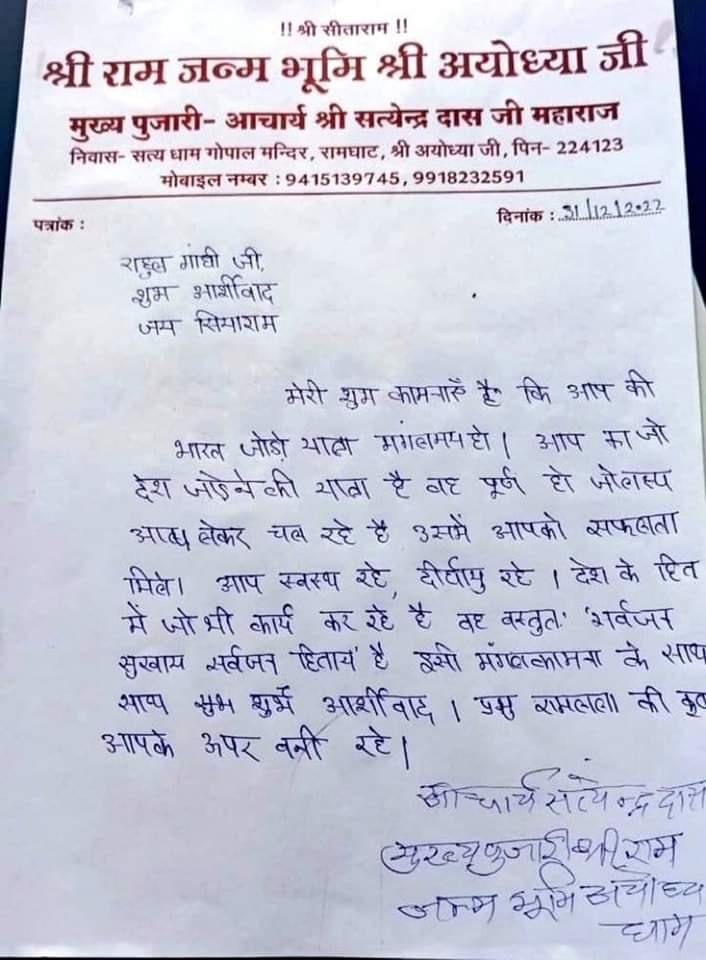 !! श्री सीताराम !!
श्री राम जन्म भूमि श्री अयोध्या जी
मुख्य पुजारी- आचार्य श्री सत्येन्द्र दास जी महाराज
निवास- सत्य धाम गोपाल मन्दिर, रामघाट, श्री अयोध्या जी, पिन- 224123
मोबाइल नम्बर : 9415139745, 9918232591
पत्रांक :
दिनांक : 31/12/2022
राहुल गांधी जी,
शुभ आर्शीवाद
जय सियाराम
मेरी शुभ कामनाएँ है कि आप की
भारत जोडो यात्रा मंगलमय हो। आप का जो
देश जोडने की यात्रा है वह पूर्ण हो जो लक्ष्य
आप लेकर चल रहे है उसमें आपको सफलता
मिले। आप स्वस्थ रहे, दीर्घायु रहे । देश के हित
में जो भी कार्य कर रहे है वह वस्तुतः 'सर्वजन
सुखाय सर्वजन हिताय' है इसी मंगलकामना के साथ
साथ शुभ आर्शीवाद । प्रभु रामलला की
आपके ऊपर बनी रहे।
आचार्य सत्येन्द्र दास
मुख्य पुजारी श्री राम
जन्म भूमि अयोध्या
धाम